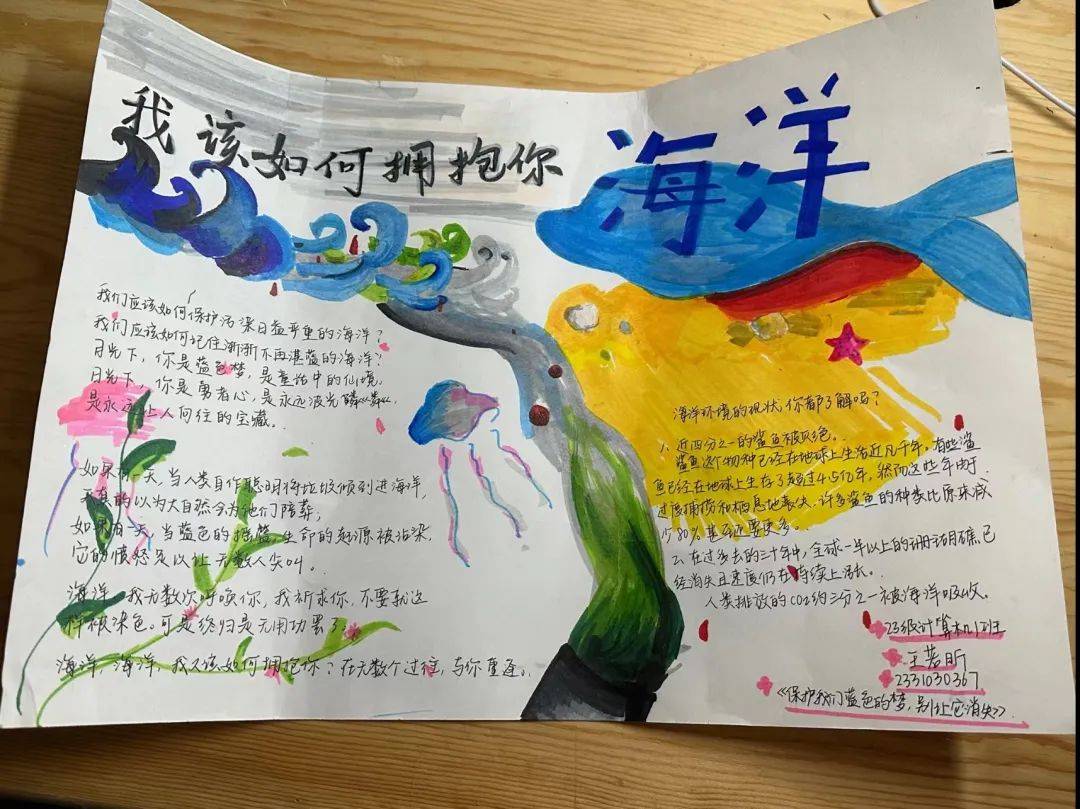 我该如何拥抱你
海洋
我们应该如何保护污染日益严重的海洋？
我们应该如何记住渐渐不再湛蓝的海洋？
月光下，你是蓝色梦，是童话中的仙境。
月光下，你是勇者心，是永远波光粼粼，
是永远让人向往的宝藏。
如果有一天，当人类自作聪明将垃圾倾到进海洋，
天真的以为大自然会为他们陪葬，
如果有一天，当蓝色的摇篮，生命的起源被沾染，
它的愤怒足以让无数人尖叫。
海洋，我无数次呼唤你，我祈求你，不要就这
样被染色。可是终归是无用功罢了。
海洋，海洋，我又该如何拥抱你？在无数个过往，与你重逢。
海洋环境的现状，你都了解吗？
1、近四分之一的鲨鱼被灭绝。
鲨鱼这个物种已经在地球上生活近几千年。有些鲨
鱼已经在地球上生存了超过4.5亿年，然而这些年由于
过度捕捞和栖息地丧失，许多鲨鱼的种类比原来减
少80%甚至还要更多。
2、在过去的三十年中，全球一半以上的珊瑚礁已
经消失且速度仍在持续上涨。
人类排放的CO2约三分之一被海洋吸收。
23级计算机1班
王若昕
2331030367
《保护我们蓝色的梦，别让它消失》